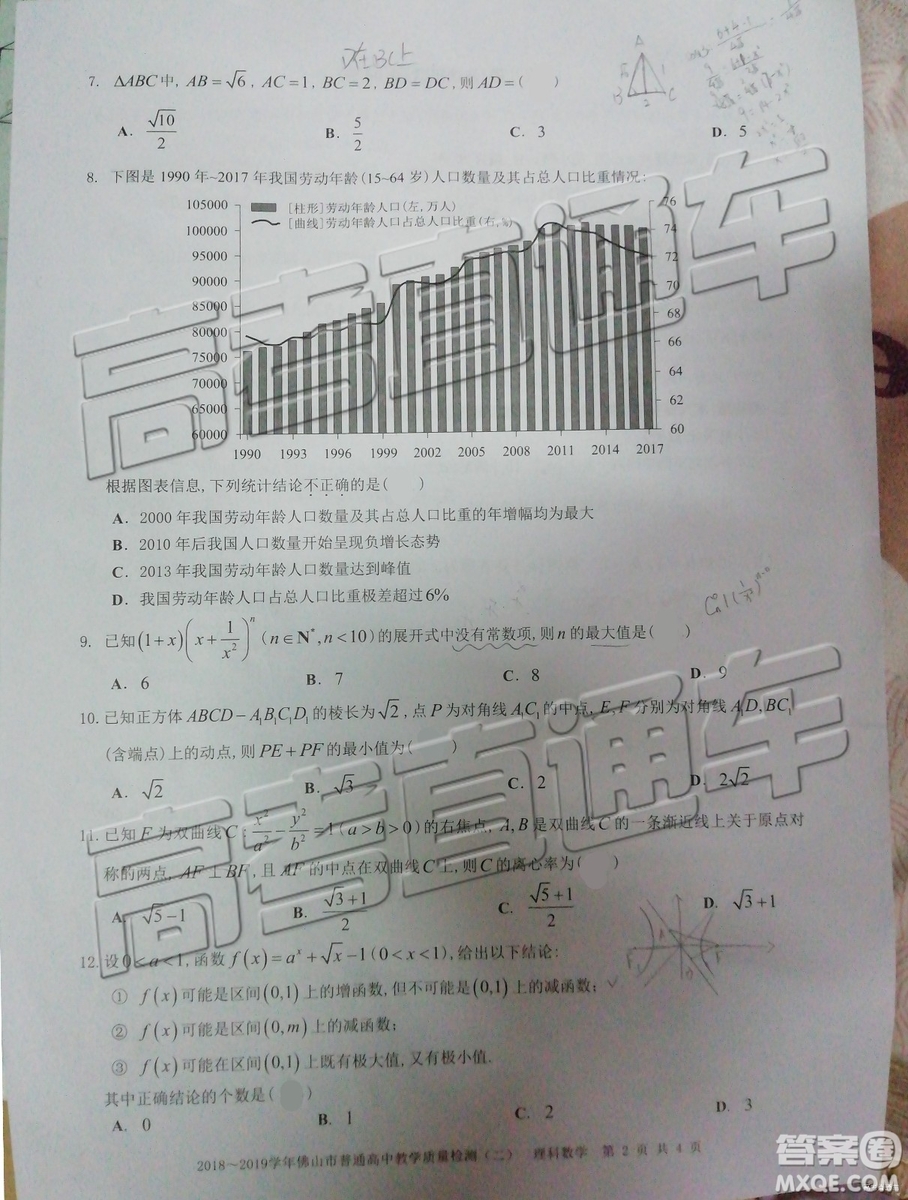 在BC上
7. ΔABC中, AB=√6, AC=1, BC=2, BD=DC, 则AD=(  )
A. √10/2  B. 5/2  C. 3  D. 5
8. 下图是 1990 年~2017 年我国劳动年龄(15~64 岁)人口数量及其占总人口比重情况:
[柱形]劳动年龄人口(左,万人)
[曲线]劳动年龄人口占总人口比重(右,%)
105000 76
100000 74
95000 72
90000 70
85000 68
80000 66
75000 64
70000 62
65000
60000 60
1990 1993 1996 1999 2002 2005 2008 2011 2014 2017
根据图表信息,下列统计结论不正确的是(  )
A. 2000 年我国劳动年龄人口数量及其占总人口比重的年增幅均为最大
B. 2010 年后我国人口数量开始呈现负增长态势
C. 2013 年我国劳动年龄人口数量达到峰值
D. 我国劳动年龄人口占总人口比重极差超过6%
9. 已知(1+x)(x+1/x²)ⁿ(n∈N*,n<10)的展开式中没有常数项,则n的最大值是(  )
A. 6  B. 7  C. 8  D. 9
10. 已知正方体ABCD-A₁B₁C₁D₁的棱长为√2,点P为对角线A₁C₁的中点,E,F分别为对角线A₁D,BC₁
(含端点)上的动点,则PE+PF的最小值为(  )
A. √2  B. √3  C. 2  D. 2√2
11. 已知F为双曲线C:x²/a²-y²/b²=1(a>b>0)的右焦点,A,B是双曲线C的一条渐近线上关于原点对
称的两点,AF⊥BF,且AF的中点在双曲线C上,则C的离心率为(  )
A. √5-1  B. (√3+1)/2  C. (√5+1)/2  D. √3+1
12. 设0<a<1,函数f(x)=aˣ+√x-1(0<x<1),给出以下结论:
① f(x)可能是区间(0,1)上的增函数,但不可能是(0,1)上的减函数;
② f(x)可能是区间(0,m)上的减函数;
③ f(x)可能在区间(0,1)上既有极大值,又有极小值.
其中正确结论的个数是(  )
A. 0  B. 1  C. 2  D. 3
2018~2019学年佛山市普通高中教学质量检测(二) 理科数学 第 2 页 共 4 页
高考直通车
高考直通车
作业帮